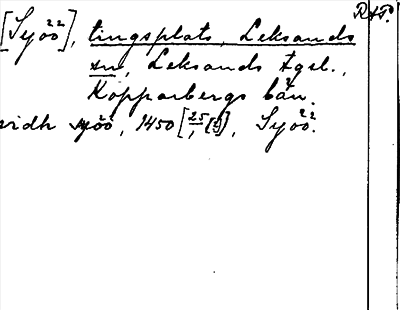 RAP.
[Syöö²²], tingsplats, Leksands
sn, Leksands tgsl.,
Kopparbergs län.
vidh syöö, 1450 [25/1, (?)], Syöö²².